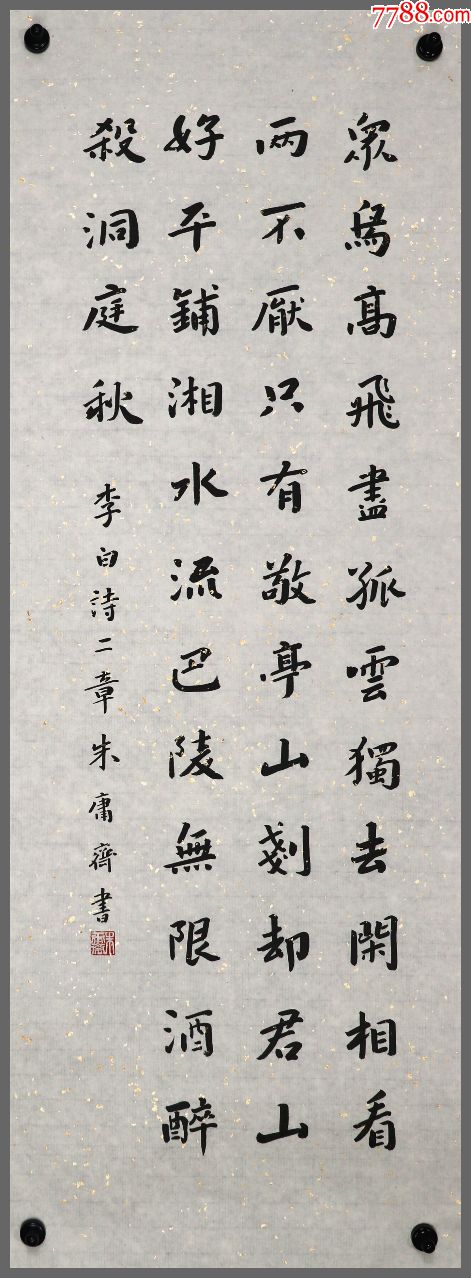 7788.com
眾鳥高飛盡孤雲獨去閑相看
兩不厭只有敬亭山剗却君山
好平鋪湘水流巴陵無限酒醉
殺洞庭秋
李白詩二章朱庸齊書